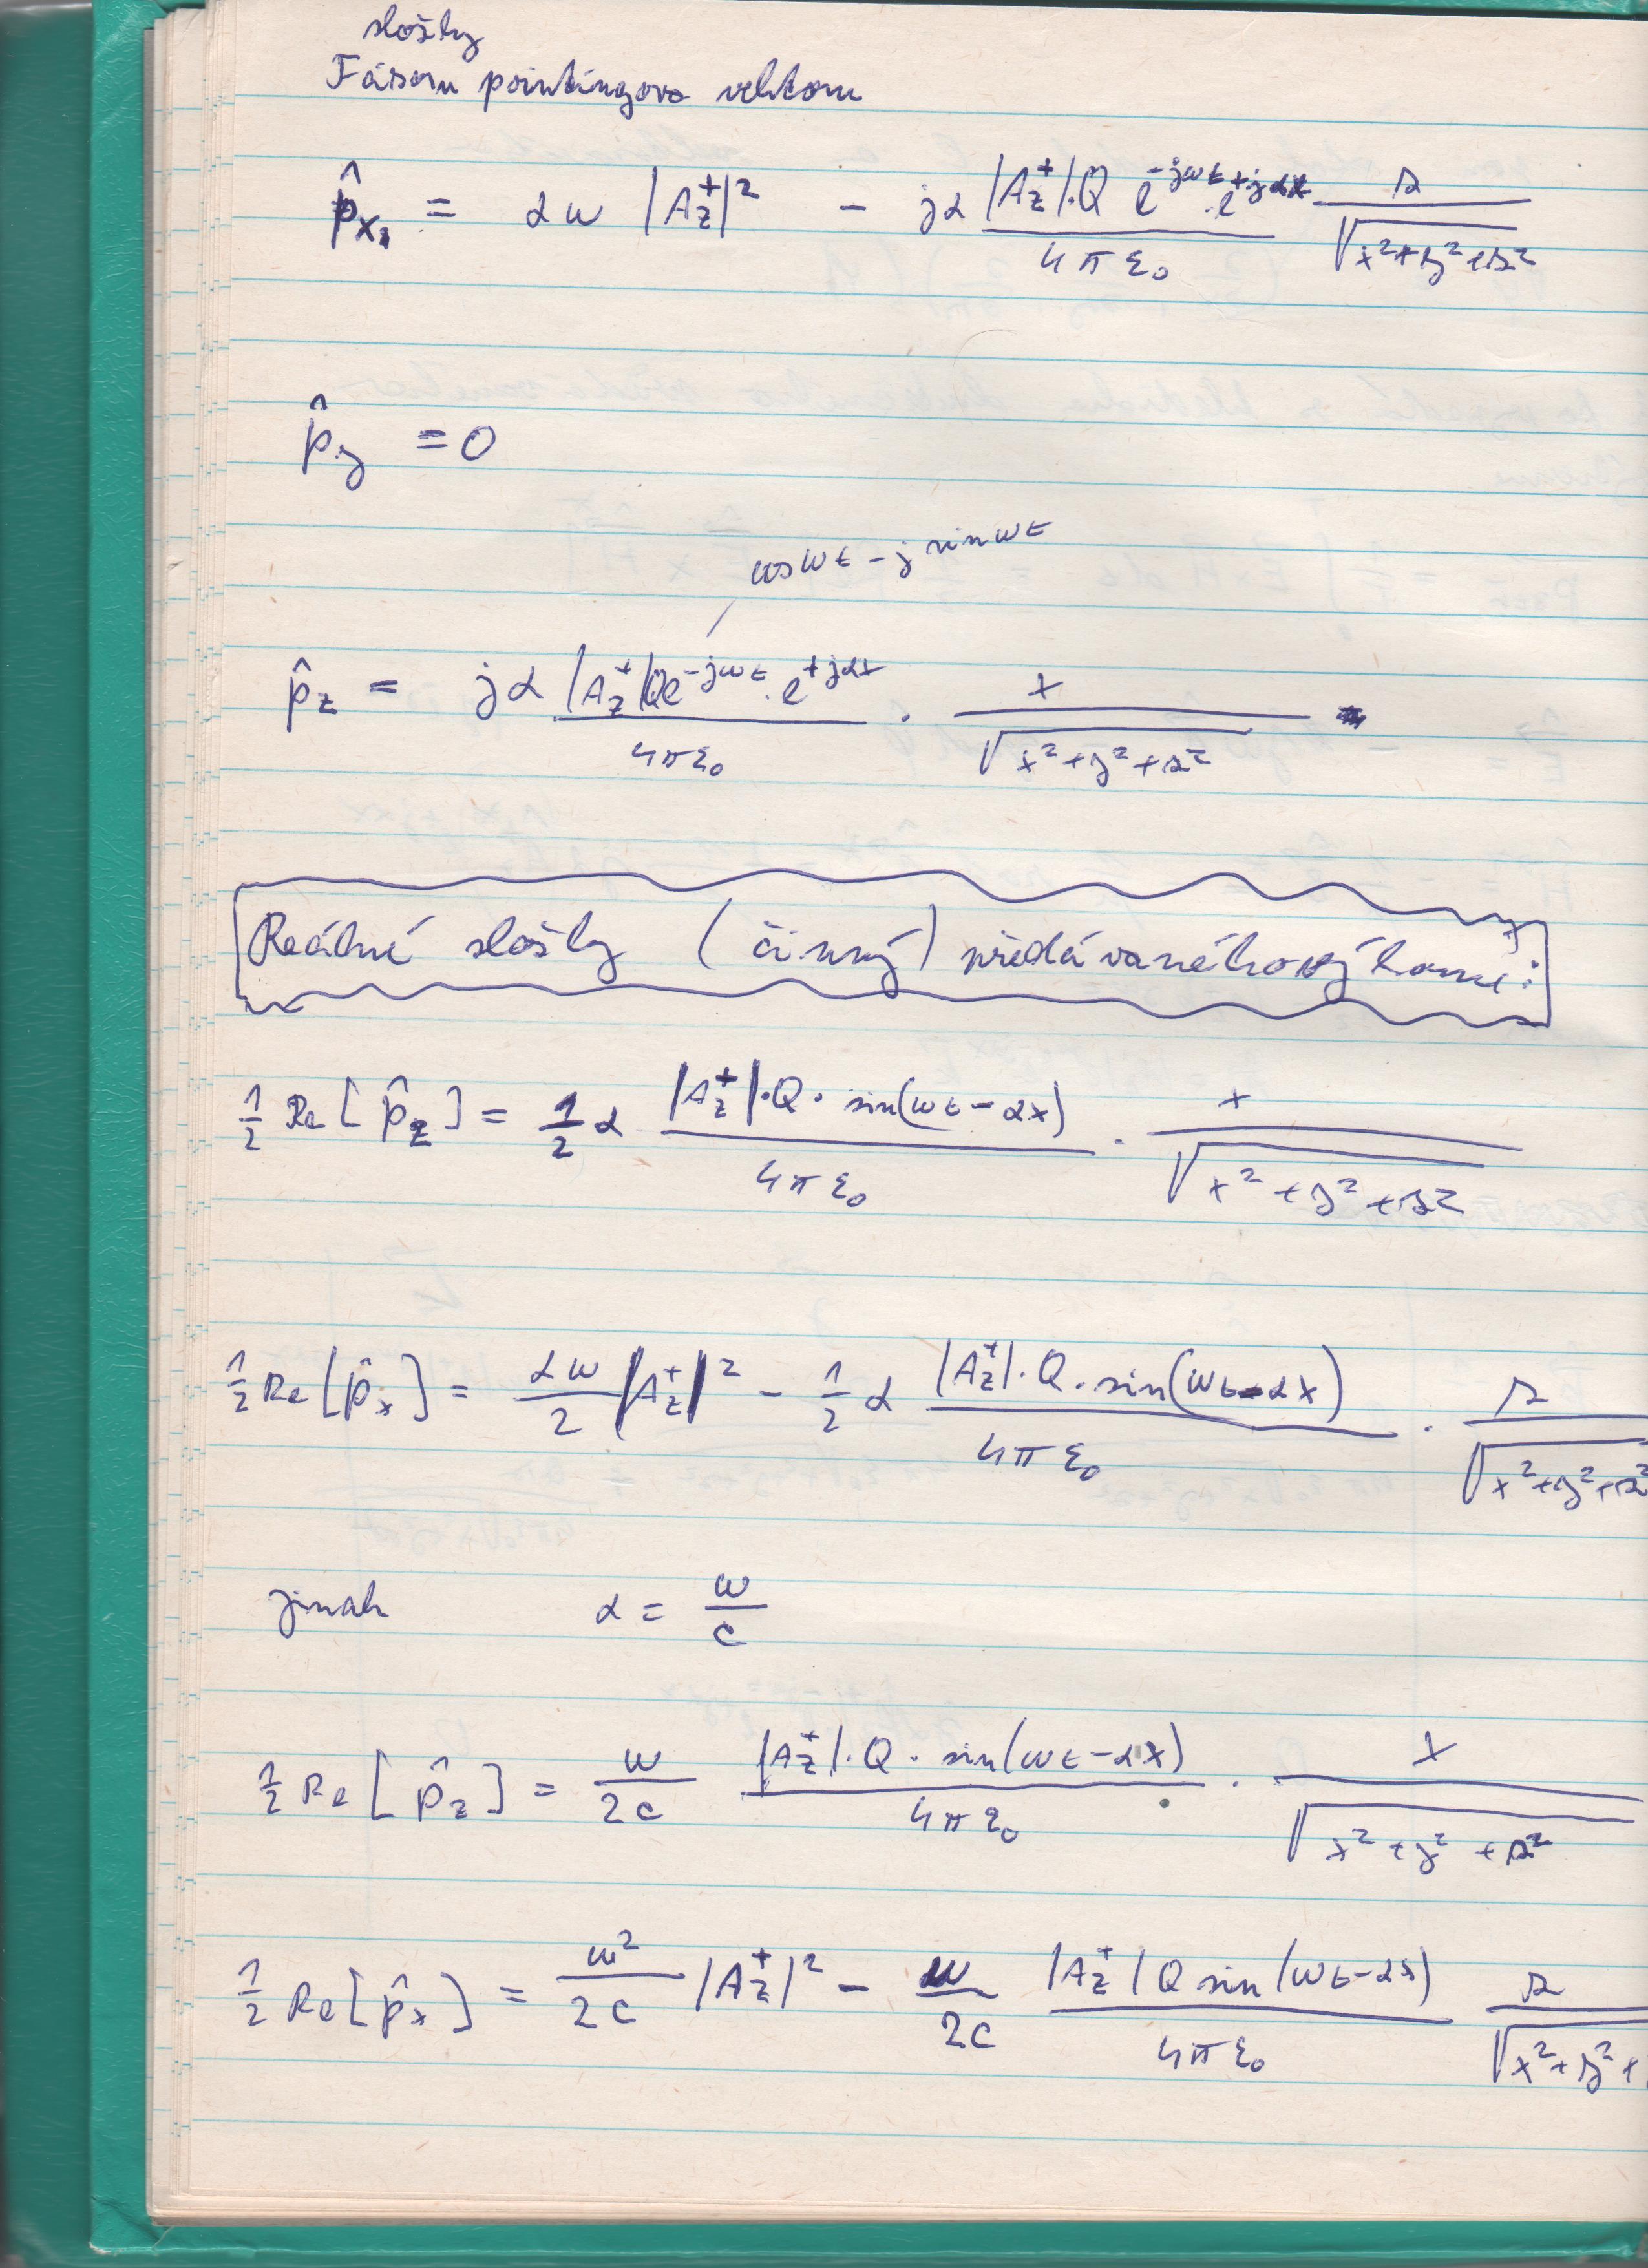 složky
Fásoru pointingova vektoru
p̂ₓ = αω |A_z⁺|² − jα (|A_z⁺|·Q e^(−jωt)·e^(+jαx))/(4πε₀) z/√(x²+y²+z²)
p̂_y = 0
cosωt − j sinωt
p̂_z = jα (|A_z⁺|Qe^(−jωt)·e^(+jαx))/(4πε₀) · x/√(x²+y²+z²)
Reálné složky (činný) předávaného výkonu:
1/2 Re[p̂_z] = 1/2 α (|A_z⁺|·Q·sin(ωt−αx))/(4πε₀) · x/√(x²+y²+z²)
1/2 Re[p̂ₓ] = αω/2 |A_z⁺|² − 1/2 α (|A_z⁺|·Q·sin(ωt−αx))/(4πε₀) · z/√(x²+y²+z²)
jinak α = ω/c
1/2 Re[p̂_z] = ω/2c (|A_z⁺|·Q·sin(ωt−αx))/(4πε₀) · x/√(x²+y²+z²)
1/2 Re[p̂ₓ] = ω²/2c |A_z⁺|² − ω/2c (|A_z⁺|Q sin(ωt−αx))/(4πε₀) z/√(x²+y²+